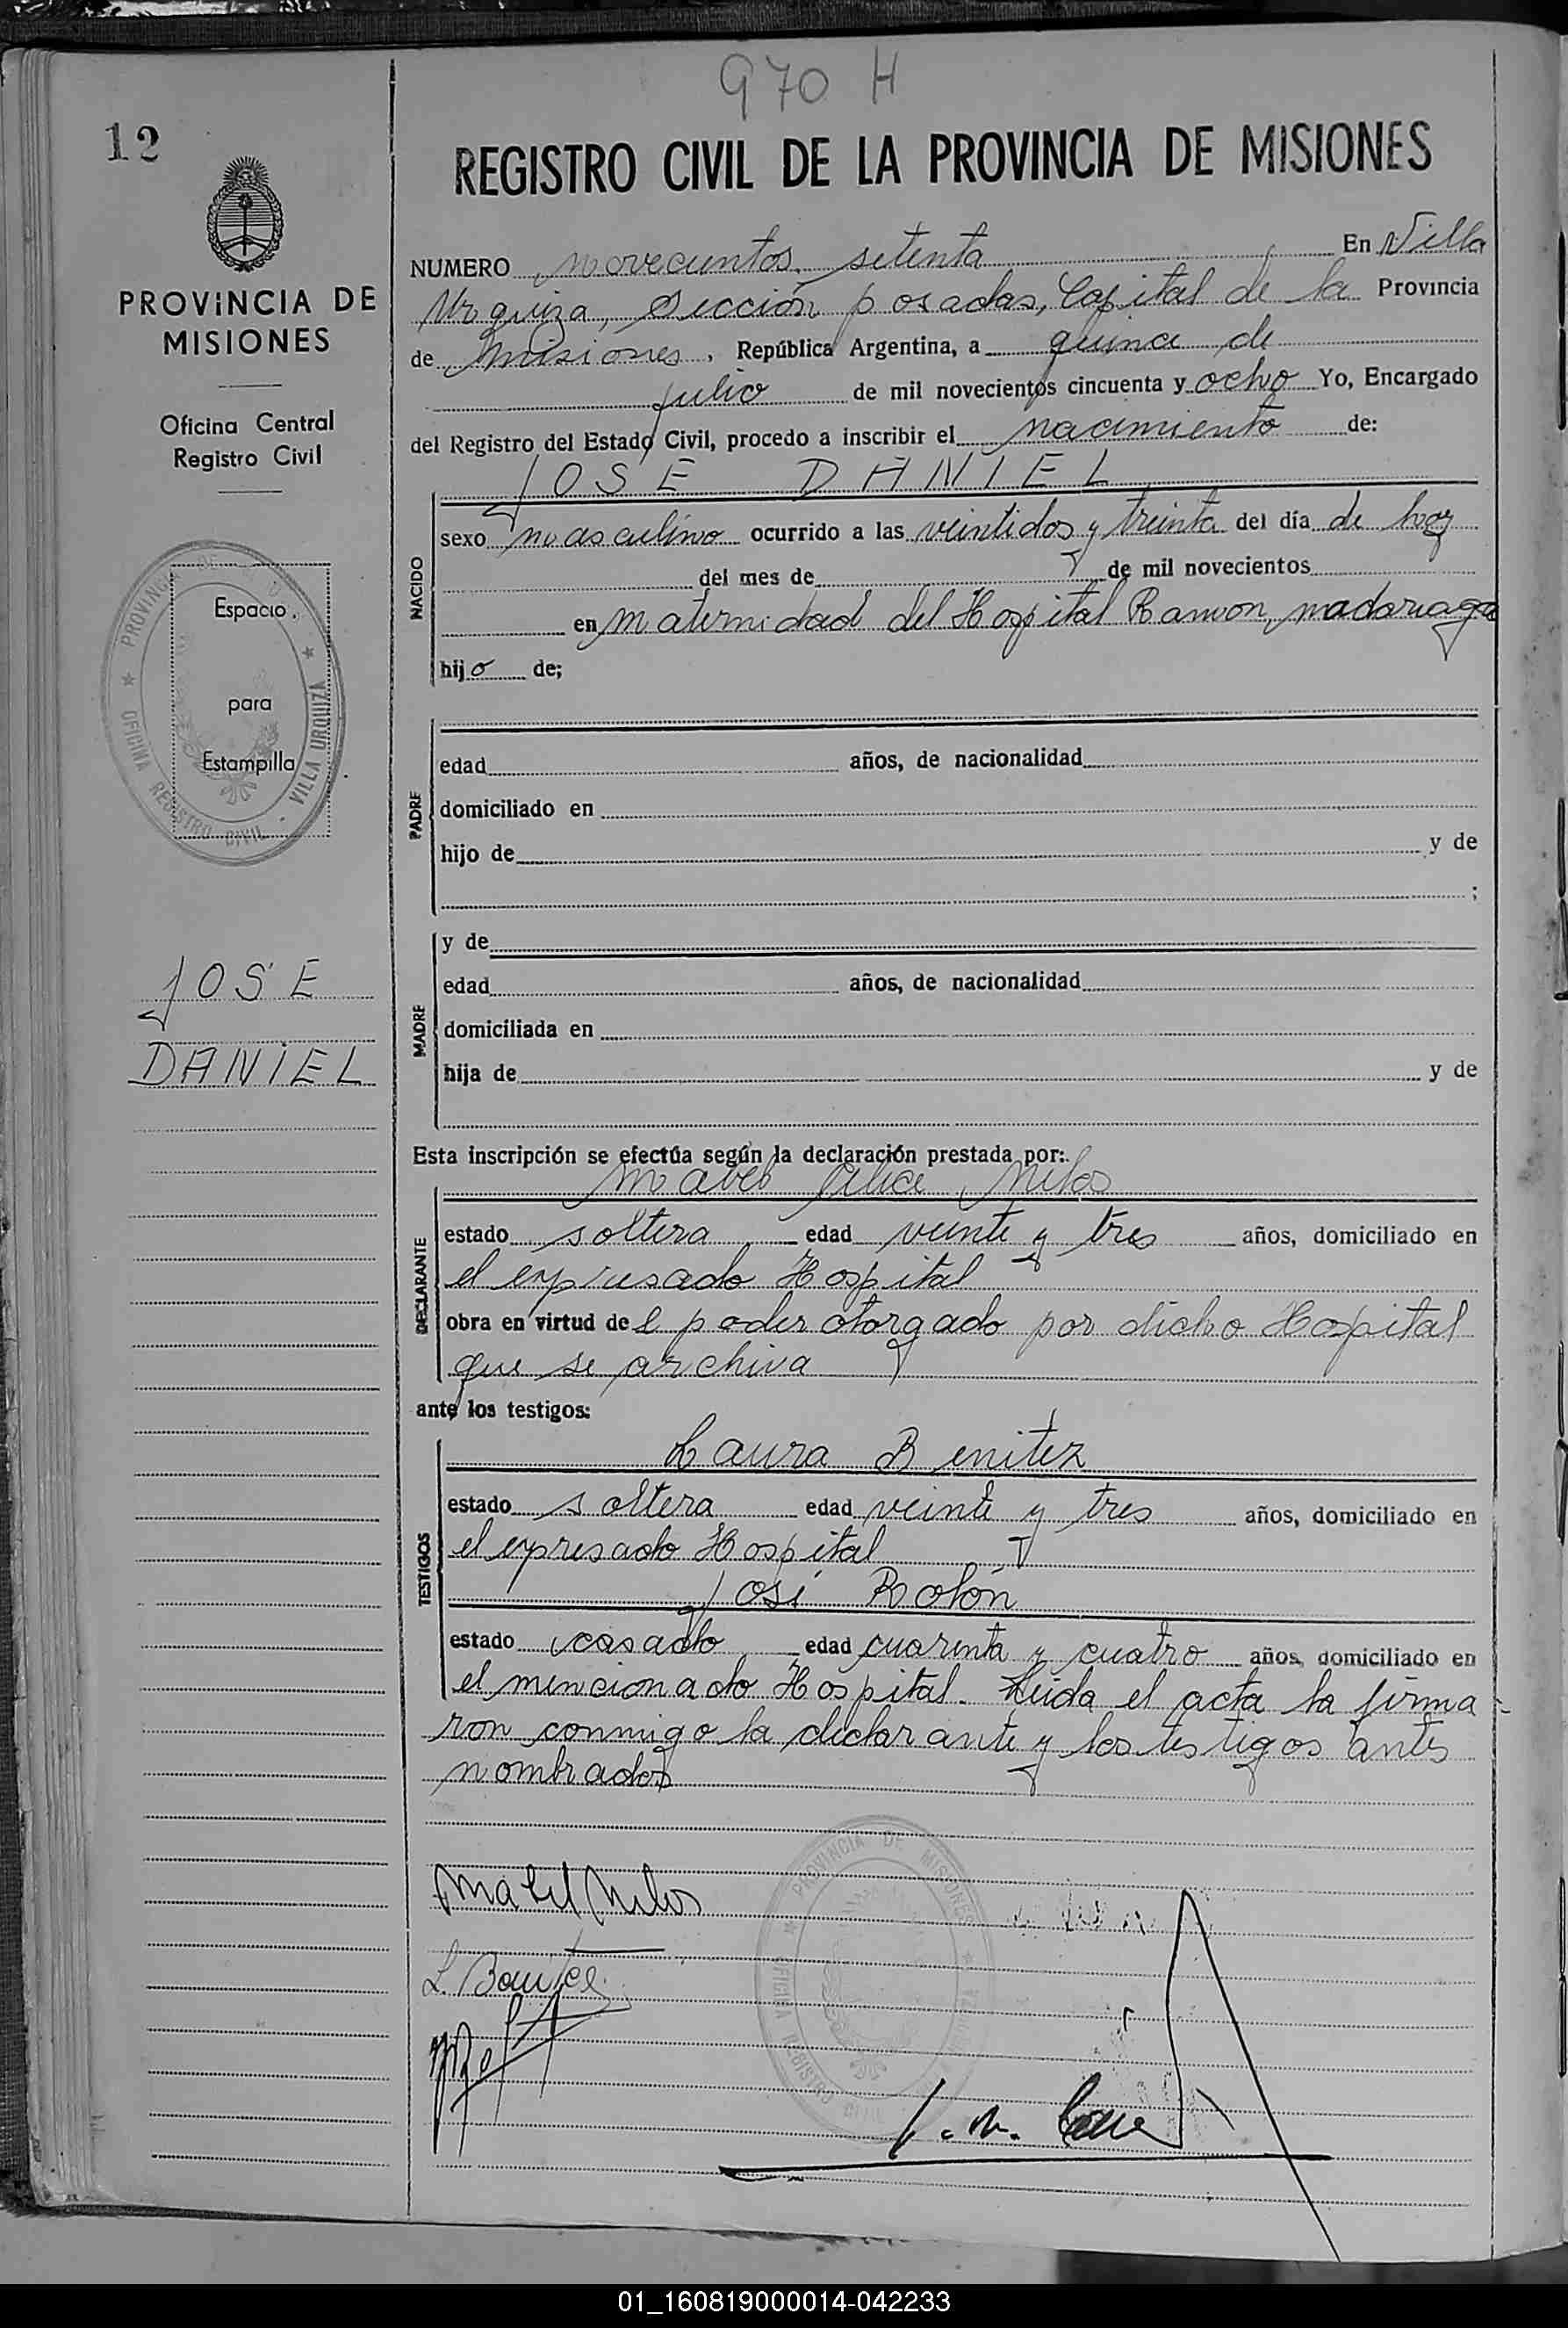 970 H
12
REGISTRO CIVIL DE LA PROVINCIA DE MISIONES
PROVINCIA DE
MISIONES
Oficina Central
Registro Civil
NUMERO novecientos setenta En Villa
Urquiza, Sección posadas, Capital de la Provincia
de misiones, República Argentina, a quince de
julio de mil novecientos cincuenta y ocho Yo, Encargado
del Registro del Estado Civil, procedo a inscribir el nacimiento de:
JOSE DANIEL
NACIDO
sexo masculino ocurrido a las veintidos y treinta del día de hoy
del mes de de mil novecientos
en maternidad del Hospital Ramon madariaga
hijo de;
Espacio
para
Estampilla
PROVINCIA DE
OFICINA REGISTRO CIVIL - VILLA URQUIZA
PADRE
edad años, de nacionalidad
domiciliado en
hijo de y de
;
JOSE
DANIEL
MADRE
y de
edad años, de nacionalidad
domiciliada en
hija de y de
Esta inscripción se efectúa según la declaración prestada por:
DECLARANTE
mabel Milos
estado soltera edad veinte y tres años, domiciliado en
el expresado Hospital
obra en virtud del poder otorgado por dicho Hospital
que se archiva
ante los testigos:
TESTIGOS
Laura Benitez
estado soltera edad veinte y tres años, domiciliado en
el expresado Hospital
José Rolón
estado casado edad cuarenta y cuatro años, domiciliado en
el mencionado Hospital. Leida el acta la firma-
ron conmigo la declarante y los testigos antes
nombrados
PROVINCIA DE MISIONES
OFICINA REGISTRO CIVIL
Mabel Milos
L. Benitez
01_160819000014-042233